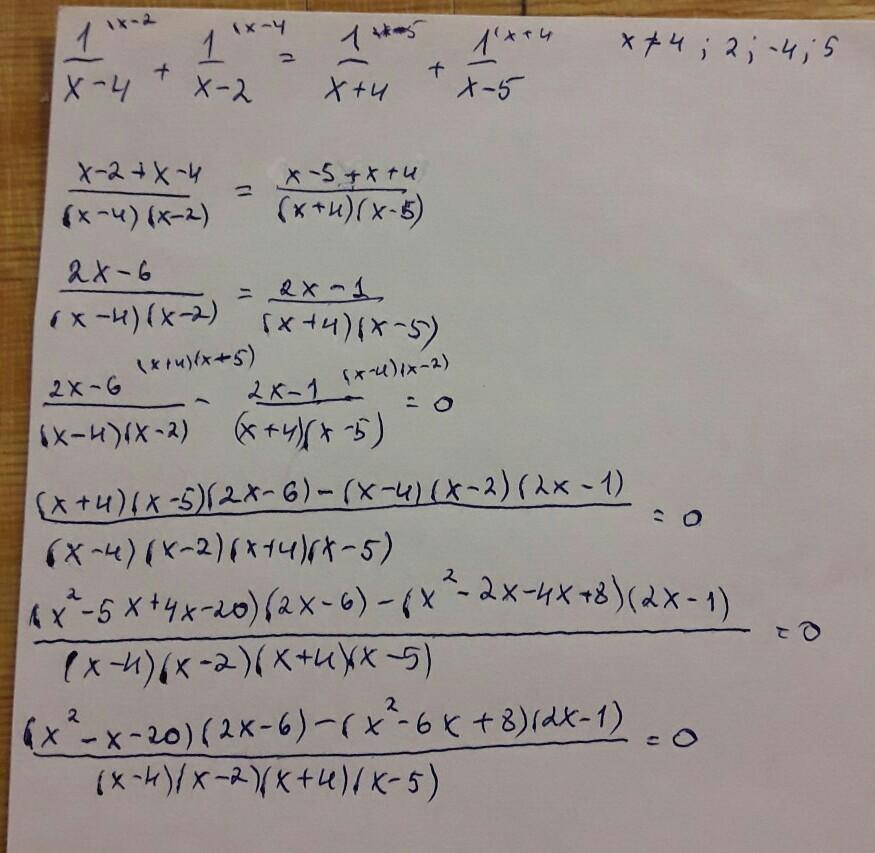 1^(x-2 / x-4 + 1^(x-4 / x-2 = 1^(x-5 / x+4 + 1^(x+4 / x-5    x ≠ 4 ; 2 ; -4 ; 5
x-2+x-4 / (x-4)(x-2) = x-5+x+4 / (x+4)(x-5)
2x-6 / (x-4)(x-2) = 2x-1 / (x+4)(x-5)
2x-6^(x+4)(x-5) / (x-4)(x-2) - 2x-1^(x-4)(x-2) / (x+4)(x-5) = 0
(x+4)(x-5)(2x-6)-(x-4)(x-2)(2x-1) / (x-4)(x-2)(x+4)(x-5) = 0
(x²-5x+4x-20)(2x-6)-(x²-2x-4x+8)(2x-1) / (x-4)(x-2)(x+4)(x-5) = 0
(x²-x-20)(2x-6)-(x²-6x+8)(2x-1) / (x-4)(x-2)(x+4)(x-5) = 0